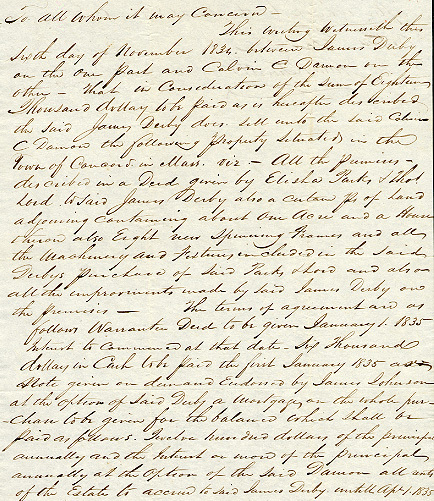 To all whom it may Concern —
This writing Witnesseth this
Sixth day of November 1834. between James Derby
on the one part and Calvin C Damon on the
other — that in Consideration of the Sum of Eighteen
Thousand dollars to be paid as is hereafter described
the said James Derby does sell unto the said Calvin
C Damon the following property situated in the
Town of Concord in Mass. viz — All the premises
described in a Deed given by Elisha Parks &
Lord to said James Derby also a certain ps of Land
adjoining Containing about One Acre and a House
thereon also Eight new Spinning Frames and all
the Machinery and Fixtures included in the said
Derbys purchase of said Parks & Lord and also
all the improvements made by said James Derby on
the premises — The terms of agreement are as
follows Warrantee Deed to be given January 1. 1835
Interest to Commence at that date — Six Thousand
dollars in Cash to be paid the first January 1835
Note given on demand Endorsed by James Johnson
at the option of said Derby a Mortgage on the whole pur-
chase to be given for the balance which shall be
paid as follows. Twelve hundred dollars of the principal
annually and the Interest or more of the principal
annually at the Option of the said Damon all rents
of the Estate to accrue to said James Derby untill Apl. 1. 1835